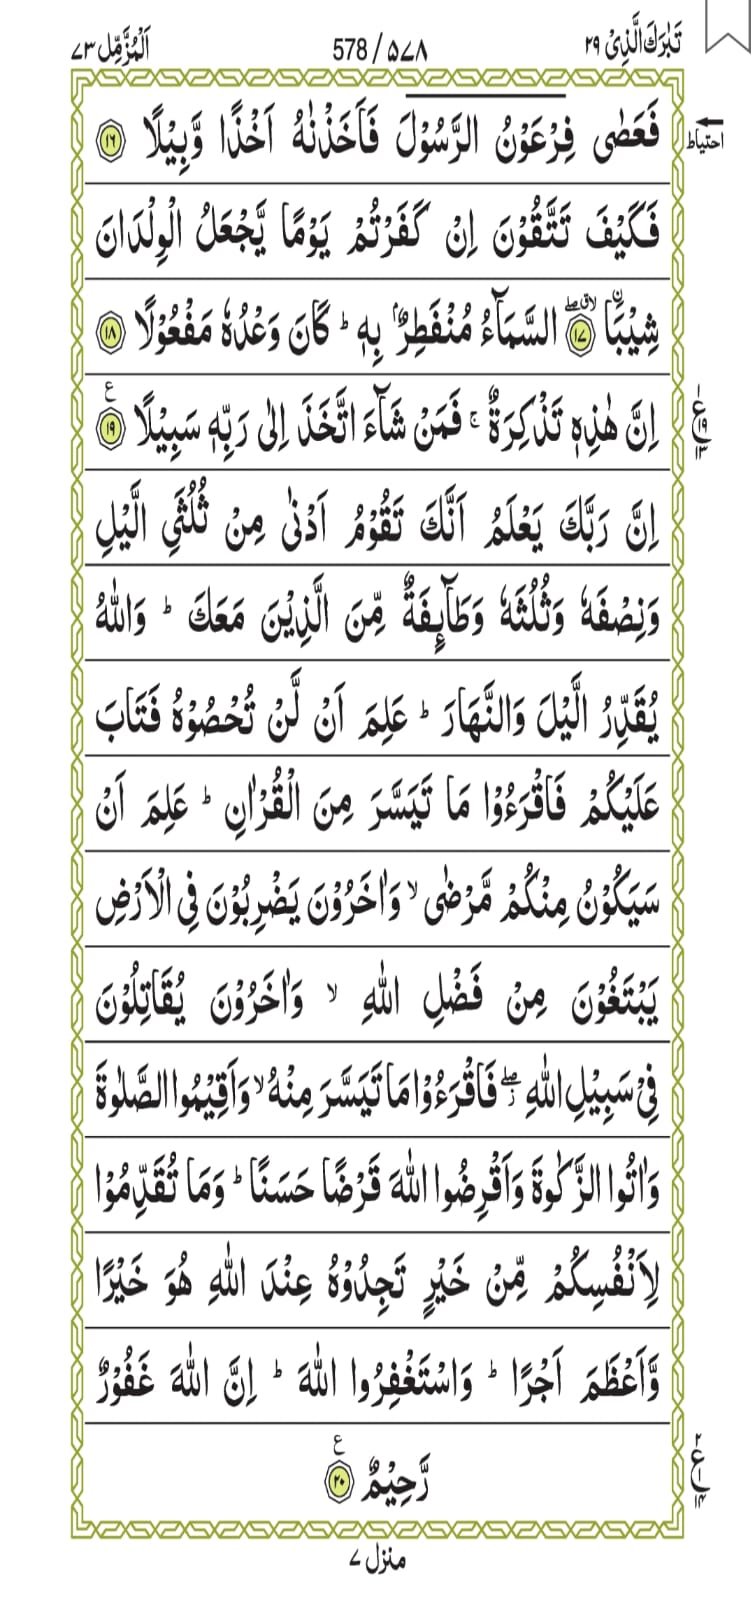 تَبٰرَكَ الَّذِىْ ٢٩ 578 / ٥٧٨ اَلْمُزَّمِّل ٧٣
فَعَصٰى فِرْعَوْنُ الرَّسُوْلَ فَاَخَذْنٰهُ اَخْذًا وَّبِيْلًا ١٦
احتیاط
فَكَيْفَ تَتَّقُوْنَ اِنْ كَفَرْتُمْ يَوْمًا يَّجْعَلُ الْوِلْدَانَ
شِيْبَاۨ ١٧ السَّمَآءُ مُنْفَطِرٌۢ بِهٖ ؕ كَانَ وَعْدُهٗ مَفْعُوْلًا ١٨
اِنَّ هٰذِهٖ تَذْكِرَةٌ ۚ فَمَنْ شَآءَ اتَّخَذَ اِلٰى رَبِّهٖ سَبِيْلًا ١٩ ع
اِنَّ رَبَّكَ يَعْلَمُ اَنَّكَ تَقُوْمُ اَدْنٰى مِنْ ثُلُثَىِ الَّيْلِ
وَنِصْفَهٗ وَثُلُثَهٗ وَطَآئِفَةٌ مِّنَ الَّذِيْنَ مَعَكَ ؕ وَاللّٰهُ
يُقَدِّرُ الَّيْلَ وَالنَّهَارَ ؕ عَلِمَ اَنْ لَّنْ تُحْصُوْهُ فَتَابَ
عَلَيْكُمْ فَاقْرَءُوْا مَا تَيَسَّرَ مِنَ الْقُرْاٰنِ ؕ عَلِمَ اَنْ
سَيَكُوْنُ مِنْكُمْ مَّرْضٰى ۙ وَاٰخَرُوْنَ يَضْرِبُوْنَ فِى الْاَرْضِ
يَبْتَغُوْنَ مِنْ فَضْلِ اللّٰهِ ۙ وَاٰخَرُوْنَ يُقَاتِلُوْنَ
فِىْ سَبِيْلِ اللّٰهِ ۖ فَاقْرَءُوْا مَا تَيَسَّرَ مِنْهُ ۙ وَاَقِيْمُوا الصَّلٰوةَ
وَاٰتُوا الزَّكٰوةَ وَاَقْرِضُوا اللّٰهَ قَرْضًا حَسَنًا ؕ وَمَا تُقَدِّمُوْا
لِاَنْفُسِكُمْ مِّنْ خَيْرٍ تَجِدُوْهُ عِنْدَ اللّٰهِ هُوَ خَيْرًا
وَّاَعْظَمَ اَجْرًا ؕ وَاسْتَغْفِرُوا اللّٰهَ ؕ اِنَّ اللّٰهَ غَفُوْرٌ
رَّحِيْمٌ ٢٠ ع
منزل ٧